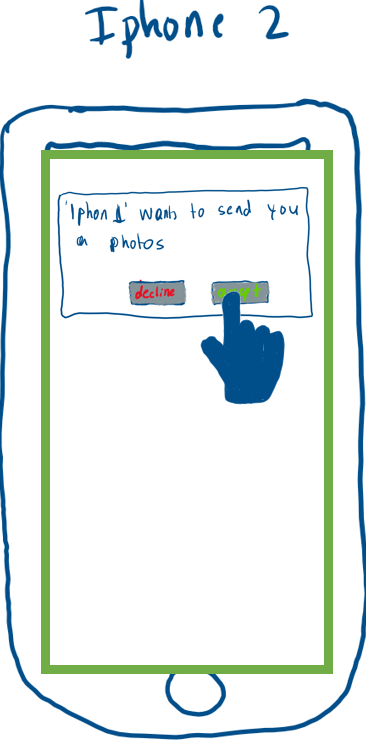 Iphone 2
'Iphon 1' wants to send you
a photos
decline